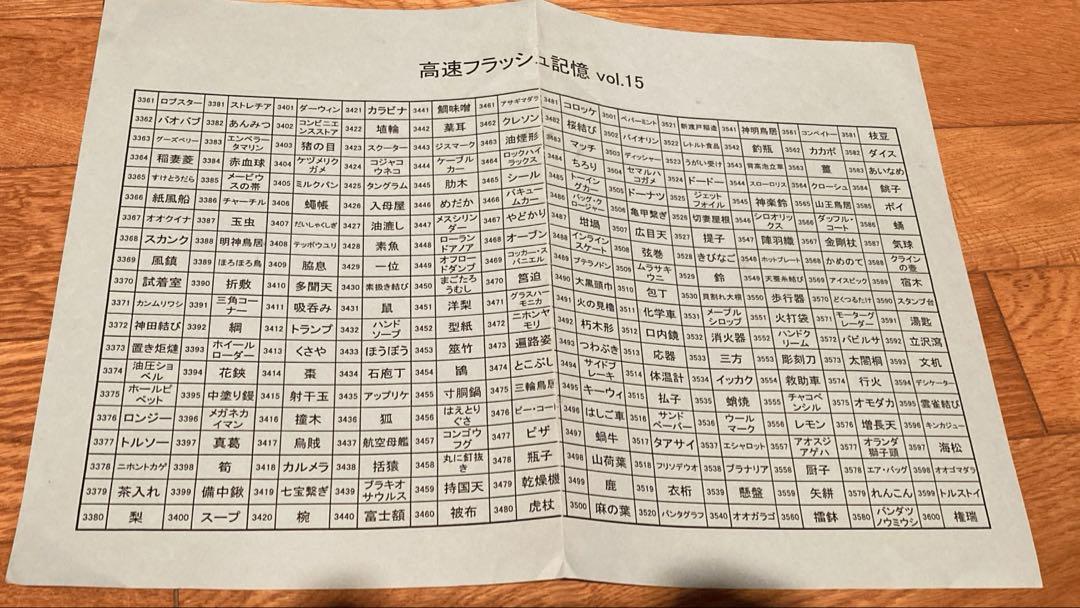 高速フラッシュ記憶 vol.15
3361 ロブスター 3381 ストレチア 3401 ダーウィン 3421 カラビナ 3441 鯛味噌 3461 アサギマダラ 3481 コロッケ 3501 ペパーミント 3521 新渡戸稲造 3541 神明鳥居 3561 コンペイトー 3581 枝豆
3362 バオバブ 3382 あんみつ 3402 コンビニエンスストア 3422 埴輪 3442 葉耳 3462 クレソン 3482 桜結び 3502 バイオリン 3522 レトルト食品 3542 釣瓶 3562 カカポ 3582 ダイス
3363 グーズベリー 3383 エンペラータマリン 3403 猪の目 3423 スクーター 3443 ジスマーク 3463 油煙形 3483 マッチ 3503 ディッシャー 3523 うがい受け 3543 背高泡立草 3563 3583 あいなめ
3364 稲妻菱 3384 赤血球 3404 ケヅメリクガメ 3424 コジャコウネコ 3444 ケーブルカー 3464 ロックハイラックス 3484 ちろり 3504 セマルハコガメ 3524 ドードー 3544 スローロリス 3564 クローシュ 3584 銚子
3365 すけとうだら 3385 メービウスの帯 3405 ミルクパン 3425 タングラム 3445 肋木 3465 シール 3485 トーイングカー 3505 ドーナツ 3525 ジェットフォイル 3545 神楽鈴 3565 山王鳥居 3585 ポイ
3366 紙風船 3386 チャーチル 3406 蠅帳 3426 入母屋 3446 めだか 3466 バキュームカー 3486 バッグ・クロージャー 3506 亀甲繋ぎ 3526 切妻屋根 3546 シロオリックス 3566 ダッフル・コート 3586 蛹
3367 オオクイナ 3387 玉虫 3407 だいしゃくしぎ 3427 油漉し 3447 メスシリンダー 3467 やどかり 3487 坩堝 3507 広目天 3527 提子 3547 陣羽織 3567 金剛杖 3587 気球
3368 スカンク 3388 明神鳥居 3408 テッポウユリ 3428 素魚 3448 ローランドアノア 3468 オーブン 3488 インラインスケート 3508 弦巻 3528 きびなご 3548 ホットプレート 3568 かめのて 3588 クラインの壺
3369 風鎮 3389 ほろほろ鳥 3409 脇息 3429 一位 3449 オフロードダンプ 3469 コッカー・スパニエル 3489 プテラノドン 3509 ムラサキウニ 3529 鈴 3549 天蚕糸結び 3569 アイスピック 3589 宿木
3370 試着室 3390 折敷 3410 多聞天 3430 素扱き結び 3450 まごたろうむし 3470 筥迫 3490 大黒頭巾 3510 包丁 3530 貝割れ大根 3550 歩行器 3570 どくつるたけ 3590 スタンプ台
3371 カンムリワシ 3391 三角コーナー 3411 吸呑み 3431 鼠 3451 洋梨 3471 グラスハーモニカ 3491 火の見櫓 3511 化学車 3531 メープルシロップ 3551 火打袋 3571 モーターグレーダー 3591 湯匙
3372 神田結び 3392 綱 3412 トランプ 3432 ハンドソープ 3452 型紙 3472 ニホンヤモリ 3492 朽木形 3512 口内鏡 3532 消火器 3552 ハンドクリーム 3572 パピルサ 3592 立沢瀉
3373 置き炬燵 3393 ホイールローダー 3413 くさや 3433 ほうぼう 3453 筮竹 3473 遍路姿 3493 つわぶき 3513 応器 3533 三方 3553 彫刻刀 3573 太閤桐 3593 文机
3374 油圧ショベル 3394 花鋏 3414 棗 3434 石庖丁 3454 鵐 3474 とこぶし 3494 サイドブレーキ 3514 体温計 3534 イッカク 3554 救助車 3574 行火 3594 デシケーター
3375 ホールピペット 3395 中塗り鏝 3415 射干玉 3435 アップリケ 3455 寸胴鍋 3475 三輪鳥居 3495 キーウィ 3515 払子 3535 蛸焼 3555 チャコペンシル 3575 オモダカ 3595 雲雀結び
3376 ロンジー 3396 メガネカイマン 3416 撞木 3436 狐 3456 はえとりぐさ 3476 ピー・コート 3496 はしご車 3516 サンドペーパー 3536 ウールマーク 3556 レモン 3576 増長天 3596 キンカジュー
3377 トルソー 3397 真葛 3417 烏賊 3437 航空母艦 3457 コンゴウフグ 3477 ピザ 3497 蝸牛 3517 タアサイ 3537 エシャロット 3557 アオスジアゲハ 3577 オランダ獅子頭 3597 海松
3378 ニホントカゲ 3398 筍 3418 カルメラ 3438 括猿 3458 丸に釘抜き 3478 瓶子 3498 山荷葉 3518 フリソデウオ 3538 プラナリア 3558 厨子 3578 エア・バッグ 3598 オオゴマダラ
3379 茶入れ 3399 備中鍬 3419 七宝繋ぎ 3439 ブラキオサウルス 3459 持国天 3479 乾燥機 3499 鹿 3519 衣桁 3539 懸盤 3559 矢絣 3579 れんこん 3599 トルストイ
3380 梨 3400 スープ 3420 椀 3440 富士額 3460 被布 3480 虎杖 3500 麻の葉 3520 パンタグラフ 3540 オオガラゴ 3560 擂鉢 3580 パンダツノウミウシ 3600 権瑞